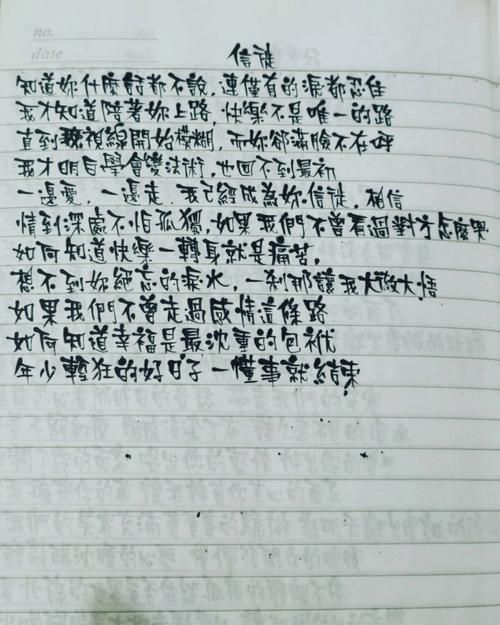 no.
date
信徒
知道妳什麼話都不說，連僅有的淚都忍住
我才知道陪著妳上路，快樂不是唯一的路
直到我視線開始模糊，而妳卻滿臉不在呼
我才明白學會變法術，也回不到最初
一邊愛，一邊走，我已經成為妳信徒，相信
情到深處不怕孤獨，如果我們不曾看過對方怎麼哭
如何知道快樂一轉身就是痛苦，
想不到妳絕忘的淚水，一剎那讓我大徹大悟
如果我們不曾走過感情這條路
如何知道幸福是最沈重的包袱
年少輕狂的好日子一懂事就結束